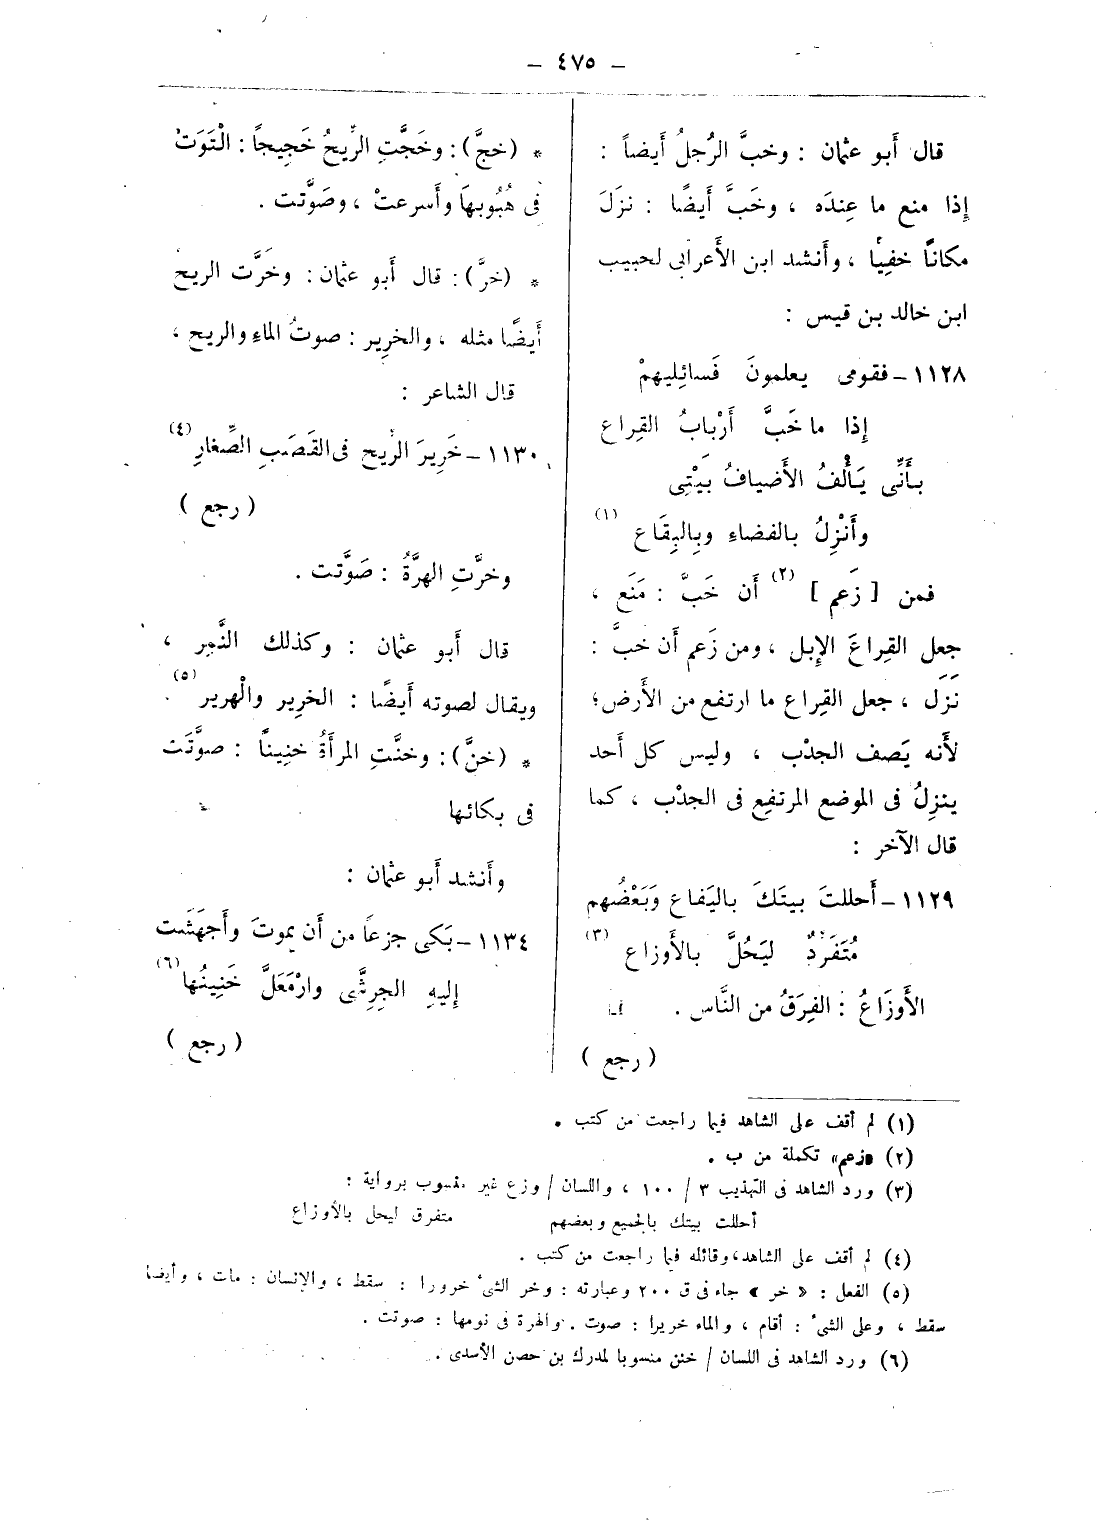 – ٤٧٥ –
قال أَبو عثمان : وخبَّ الرَّجلُ أَيضاً :
إِذا منع ما عِندَه ، وخَبَّ أَيضًا : نزَلَ
مكانًا خفِيًا ، وأَنشد ابن الأَعرابى لحبيب
ابن خالد بن قيس :
١١٢٨ – فقومى يعلمونَ فَسائِليهمْ
إِذا ما خَبَّ أَرْبابُ القِراع
بأَنِّى يَأْلَفُ الأَضيافُ بَيْتِى
وأَنْزِلُ بالفضاءِ وبِالبِقَاع (١)
فمن [ زَعم ] (٢) أَن خَبَّ : مَنَع ،
جعل القِراعَ الإِبل ، ومن زَعم أَن خبَّ :
نزل ، جعل القِراع ما ارتفع من الأَرض؛
لأَنه يَصف الجدْب ، وليس كل أَحد
ينزِلُ فى الموضع المرتفِع فى الجدْب ، كما
قال الآخر :
١١٢٩ – أَحللتَ بيتَكَ باليَفاع وَبَعْضُهم
مُتَفَرِّدٌ ليَحُلَّ بالأَوزاع (٣)
الأَوزَاعُ : الفِرَقُ من النَّاس .
( رجع )
* (خجَّ) : وخَجَّتِ الرِّيحُ خَجِيجاً : الْتَوَتْ
فى هُبُوبهَا وأَسرعتْ ، وصَوَّتت .
* (خرَّ) : قال أَبو عثمان : وخَرَّت الريح
أَيضًا مثله ، والخرِير : صوتُ الماءِ والريح ،
قال الشاعر :
١١٣٠ – خَرِيرَ الرِّيح فى القَصَبِ الصِّغارِ (٤)
( رجع )
وخرَّتِ الهرَّةُ : صَوَّتت .
قال أَبو عثمان : وكذلك النَّمِر ،
ويقال لصوته أَيضًا : الخرِير والْهرير (٥) .
* (خنَّ) : وخنَّتِ المرأَةُ خنِيناً : صوَّتَت
فى بكائها
وأَنشد أَبو عثمان :
١١٣٤ – بَكى جزعاً من أَن يموتَ وأَجهَشَت
إِليهِ الجِرِشَّى وارْمَعَلَّ خَنِينُها (٦)
( رجع )
(١) لم أقف على الشاهد فيما راجعت من كتب .
(٢) «زعم» تكملة من ب .
(٣) ورد الشاهد فى التهذيب ٣ / ١٠٠ ، واللسان / وزع غير منسوب برواية :
أحللت بيتك بالجميع وبعضهم متفرق ليحل بالأوزاع
(٤) لم أقف على الشاهد، وقائله فيما راجعت من كتب .
(٥) الفعل : « خر » جاء فى ق ٢٠٠ وعبارته : وخر الشىء خرورا : سقط ، والإنسان : مات ، وأيضا
سقط ، وعلى الشىء : أقام ، والماء خريرا : صوت . والهرة فى نومها : صوتت .
(٦) ورد الشاهد فى اللسان / خنن منسوبا لمدرك بن حصن الأسدى .